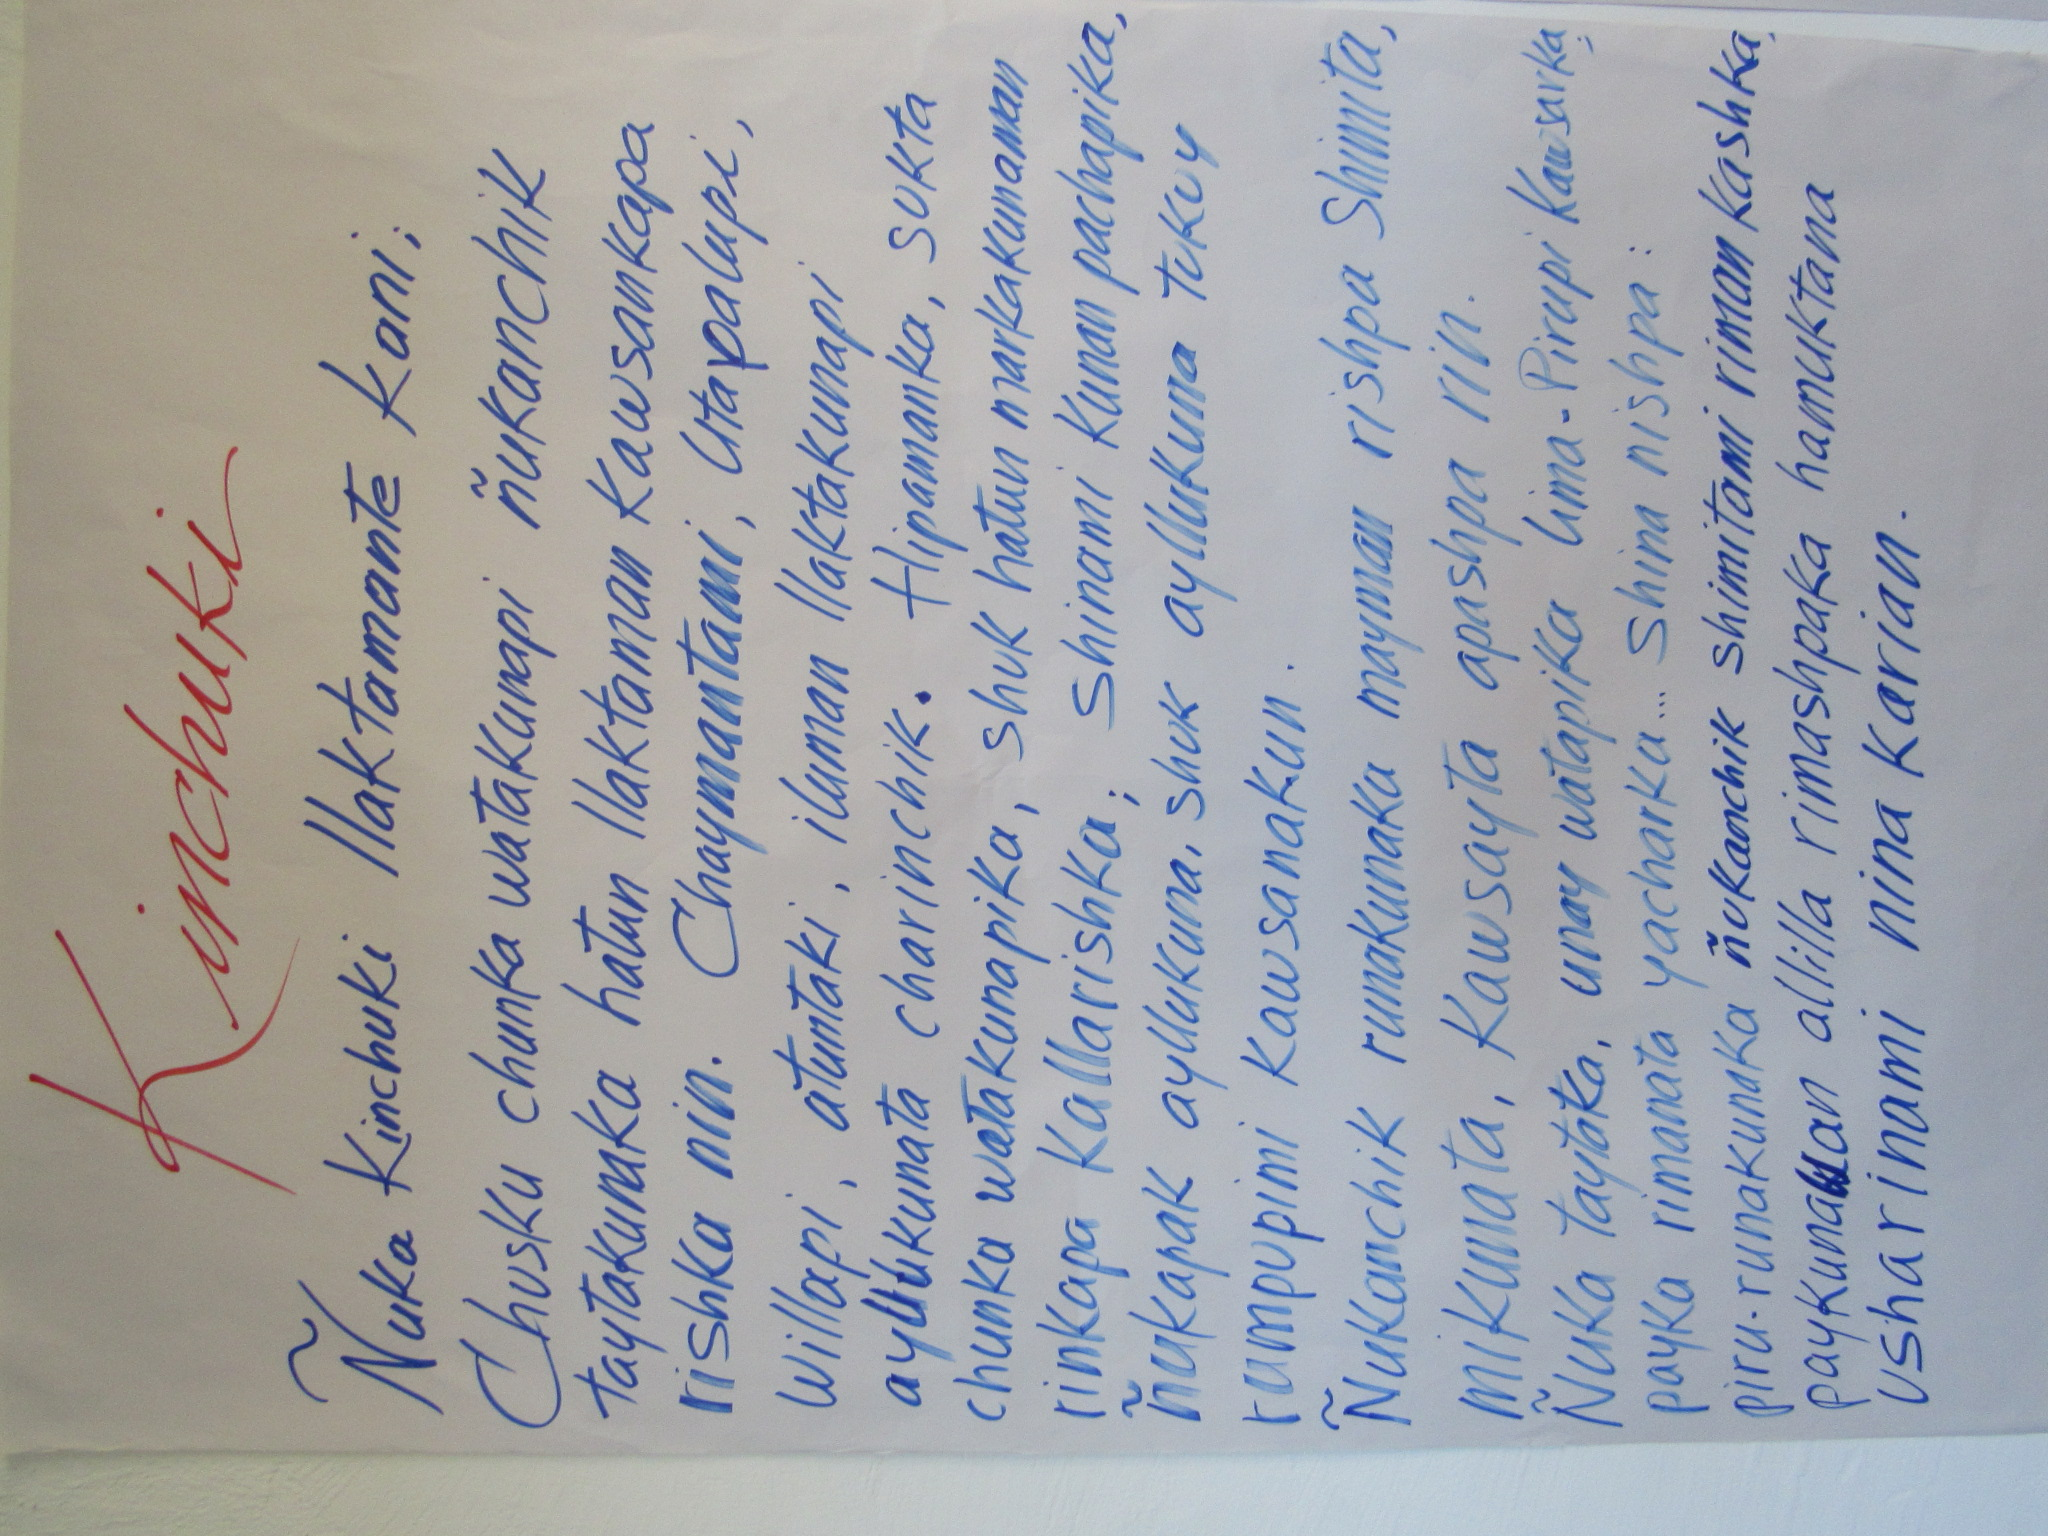 Kinchuki
Ñuka Kinchuki llaktamante kani;
Chusku chunka watakunapi ñukanchik
taytakunaka hatun llaktaman kawsankapa
rishka nin. Chaymantami, Utapalupi,
willapi, atuntaki, iluman llaktakunapi
ayllukunata charinchik. Hipamanka, sukta
chunka watakunapika, shuk hatun markakunaman
rinkapa kallarishka; shinami kunan pachapika,
ñukapak ayllukuna, shuk ayllukuna tukuy
rumpupimi kawsanakun.
Ñukanchik runakunaka mayman rishpa shimita,
mikunata, kawsayta apashpa rin.
Ñuka taytaka, unay watapika Lima-Pirupi kawsarka;
payka rimanata yacharka... shina nishpa:
piru-runakunaka ñukanchik shimitami riman kashka,
paykunawan allilla rimashpaka hamuktana
usharinami nina karian.